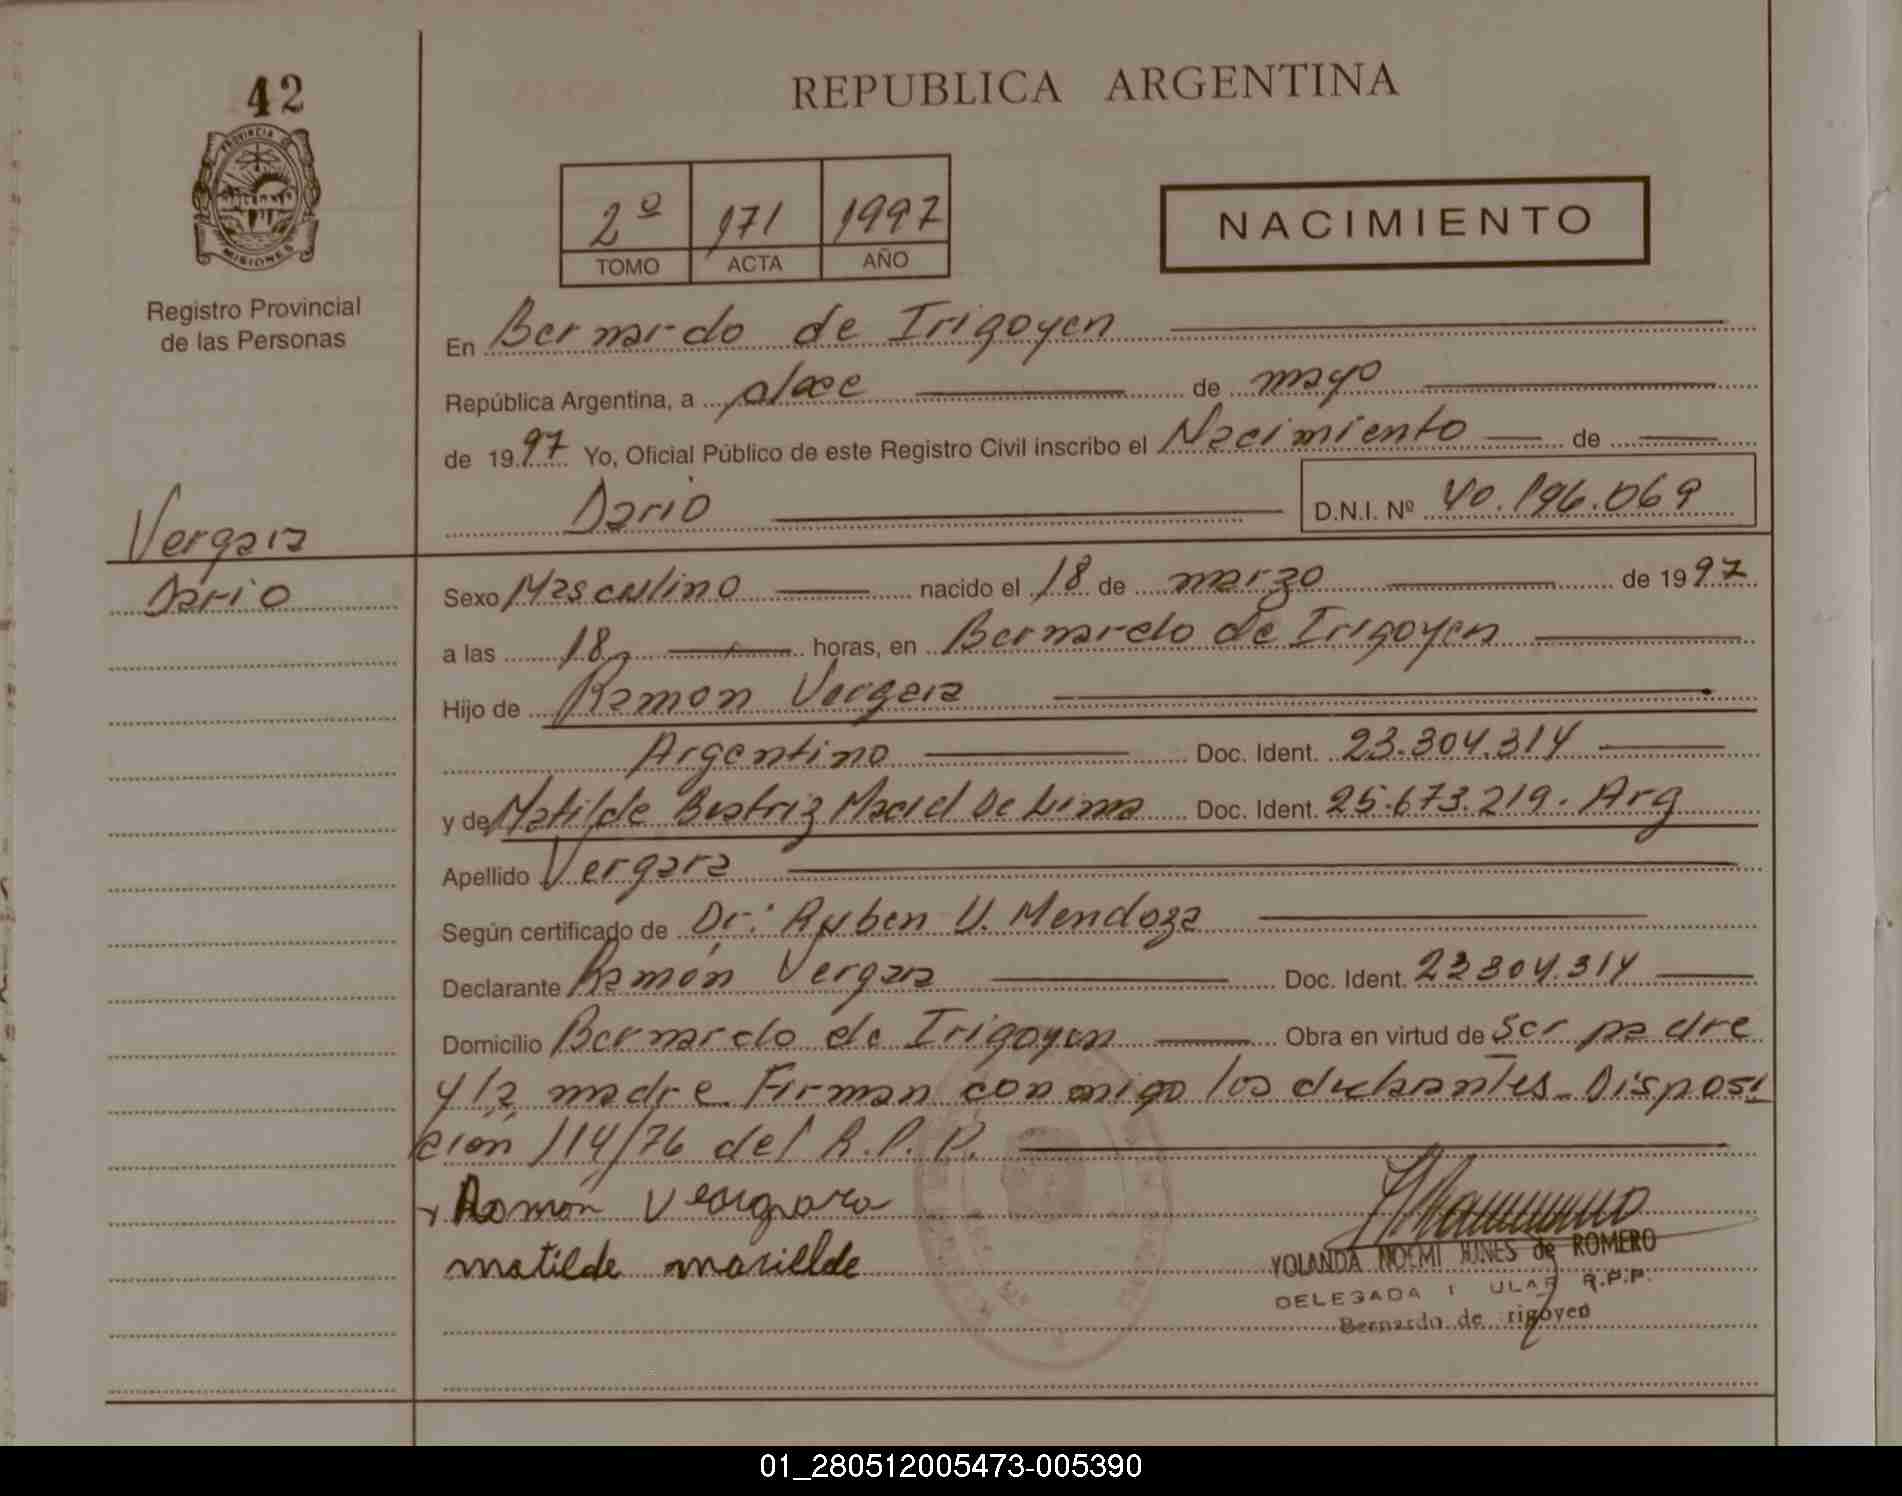 42
PROVINCIA DE
MISIONES
Registro Provincial
de las Personas
REPUBLICA ARGENTINA
2º 171 1997
TOMO ACTA AÑO
NACIMIENTO
En Bernardo de Irigoyen
República Argentina, a doce de mayo
de 1997 Yo, Oficial Público de este Registro Civil inscribo el Nacimiento de
Dario D.N.I. Nº 40.196.069
Vergara
Dario
Sexo Masculino nacido el 18 de marzo de 1997
a las 18 horas, en Bernardo de Irigoyen
Hijo de Ramon Vergara
Argentino Doc. Ident. 23.304.314
y de Matilde Beatriz Maciel De Lima Doc. Ident. 25.673.219. Arg
Apellido Vergara
Según certificado de Dr: Ruben U. Mendoza
Declarante Ramón Vergara Doc. Ident. 23304.314
Domicilio Bernardo de Irigoyen Obra en virtud de ser padre
y la madre. Firman conmigo los declarantes. Disposi
ción 114/76 del R.P.P.
Ramón Vergara
matilde
YOLANDA NOEMI de ROMERO
DELEGADA R.P.P.
Bernardo de rigoyen
01_280512005473-005390